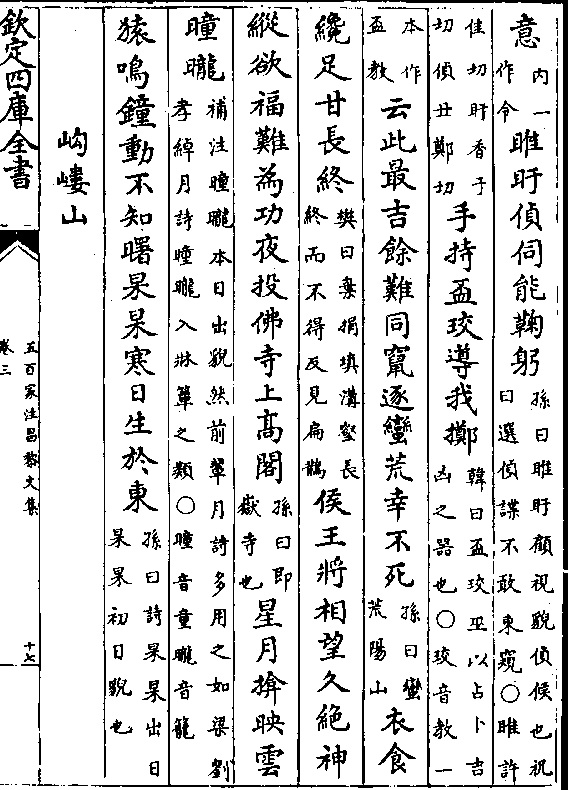 意内一作令睢盱偵伺能鞠躬孫曰睢盱顧視貌偵候也祝曰選偵諜不敢東窺○睢許
佳切盱香于切偵丑鄭切手持盃珓導我擲韓曰盃珓巫以占卜吉凶之器也○珓音教一
本作盃教云此最吉餘難同竄逐蠻荒幸不死孫曰蠻荒陽山衣食
纔足甘長終樊曰棄捐填溝壑長終而不得反見扁鵲侯王將相望久絶神
縱欲福難為功夜投佛寺上高閣孫曰即嶽寺也星月揜映雲
曈曨補注曈曨本日出貌然前輩月詩多用之如梁劉孝綽月詩曈曨入牀簟之類○曈音童曨音籠
猿鳴鐘動不知曙杲杲寒日生於東孫曰詩杲杲出日杲杲初日貌也
岣嶁山
欽定四庫全書
五百家注昌黎文集
卷三
十七